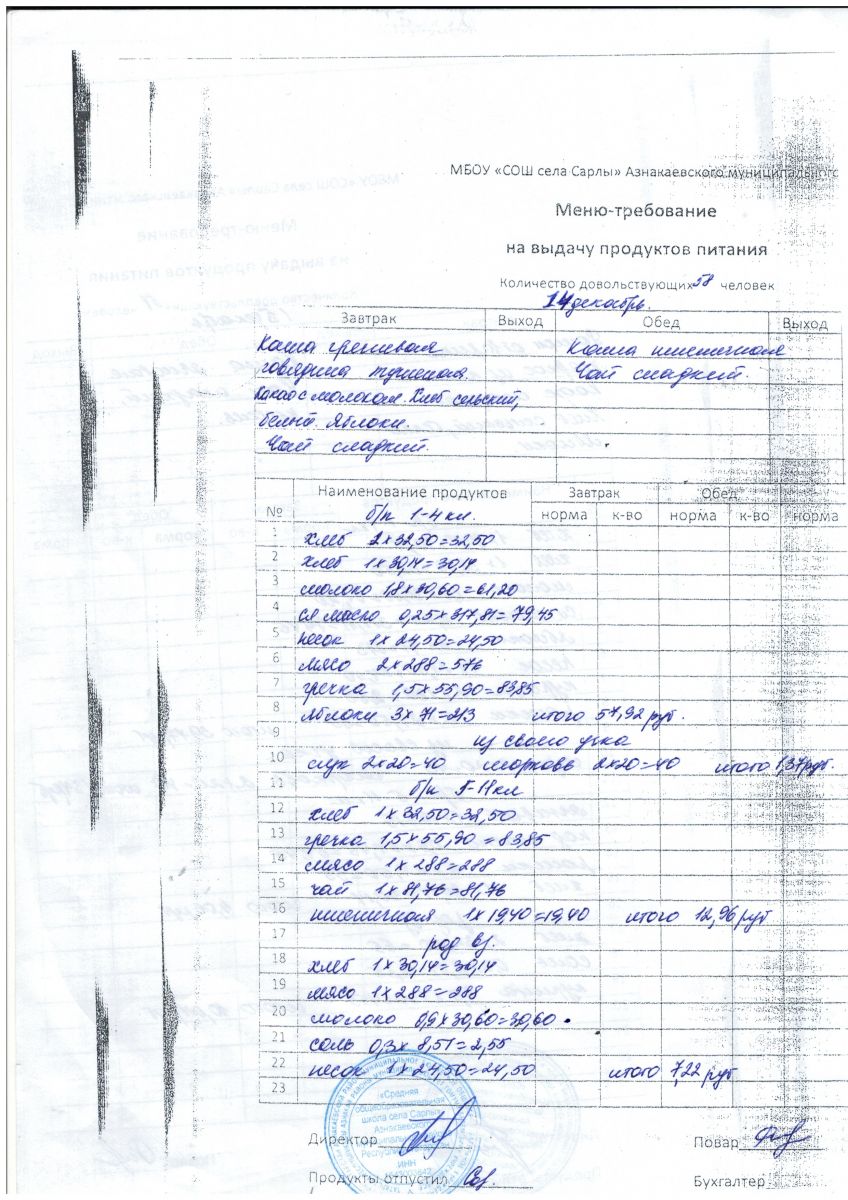 МБОУ «СОШ села Сарлы» Азнакаевского муниципального
Меню-требование
на выдачу продуктов питания
Количество довольствующих 58 человек
14 декабрь.
Завтрак Выход Обед Выход
Каша гречневая Каша пшеничная
говядина тушеная. Чай сладкий.
Какао с молоком. Хлеб сельский,
белый. Яблоки.
Чай сладкий.
№ Наименование продуктов Завтрак Обед
б/п 1-4 кл. норма к-во норма к-во норма
1 хлеб 2x32,50=32,50
2 хлеб 1x30,14=30,14
3 молоко 1,8x30,60=61,20
4 сл масло 0,25x317,81=79,45
5 песок 1x24,50=24,50
6 мясо 2x288=576
7 гречка 1,5x55,90=83,85
8 яблоки 3x71=213 итого 57,92 руб.
9 из своего уч-ка
10 лук 2x20=40 морковь 2x20=40 итого 1,37 руб.
11 б/п 5-11 кл
12 хлеб 1x32,50=32,50
13 гречка 1,5x55,90=83,85
14 мясо 1x288=288
15 чай 1x81,76=81,76
16 пшеничная 1x19,40=19,40 итого 12,96 руб
17 род вз.
18 хлеб 1x30,14=30,14
19 мясо 1x288=288
20 молоко 0,9x30,60=30,60
21 соль 0,3x8,51=2,55
22 песок 1x24,50=24,50 итого 7,22 руб
23
«Средняя
общеобразовательная
школа села Сарлы»
Азнакаевского
Директор Повар
Продукты отпустил Бухгалтер